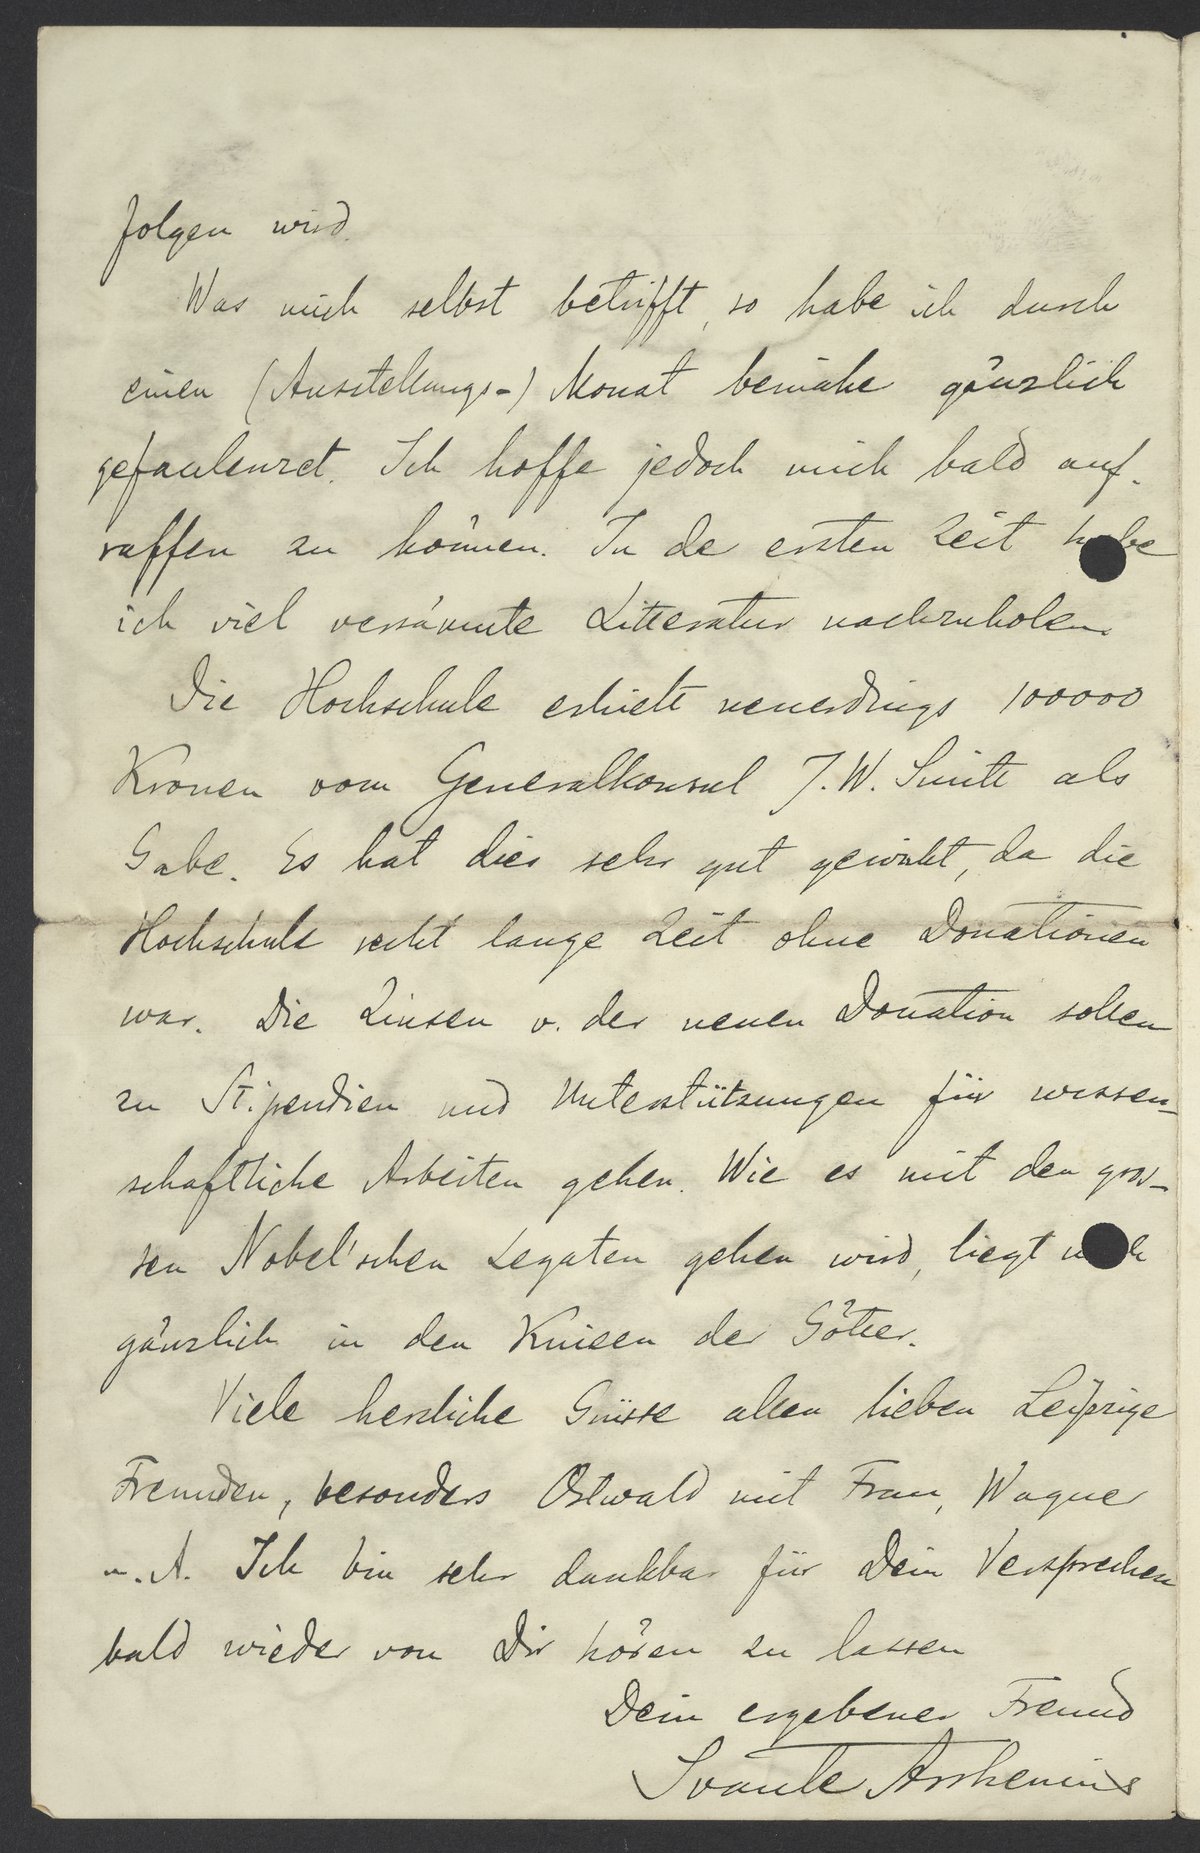 folgen wird.
Was mich selbst betrifft, so habe ich durch
einen (Ausstellungs-) Monat beinahe gänzlich
gefaulenzet. Ich hoffe jedoch mich bald auf-
raffen zu können. In der ersten Zeit habe
ich viel versäumte Litteratur nachzuholen.
Die Hochschule erhielt neuerdings 100000
Kronen vom Generalkonsul J. W. Smitt als
Gabe. Es hat dies sehr gut gewirkt, da die
Hochschule recht lange Zeit ohne Donationen
war. Die Zinsen v. der neuen Donation sollen
zu Stipendien und Unterstützungen für wissen-
schaftliche Arbeiten gehen. Wie es mit den gros-
sen Nobel'schen Legaten gehen wird, liegt noch
gänzlich in den Knieen der Götter.
Viele herzliche Grüsse allen lieben Leipziger
Freunden, besonders Ostwald mit Frau, Wagner
u. A. Ich bin sehr dankbar für Dein Versprechen
bald wieder von Dir hören zu lassen
Dein ergebener Freund
Svante Arrhenius